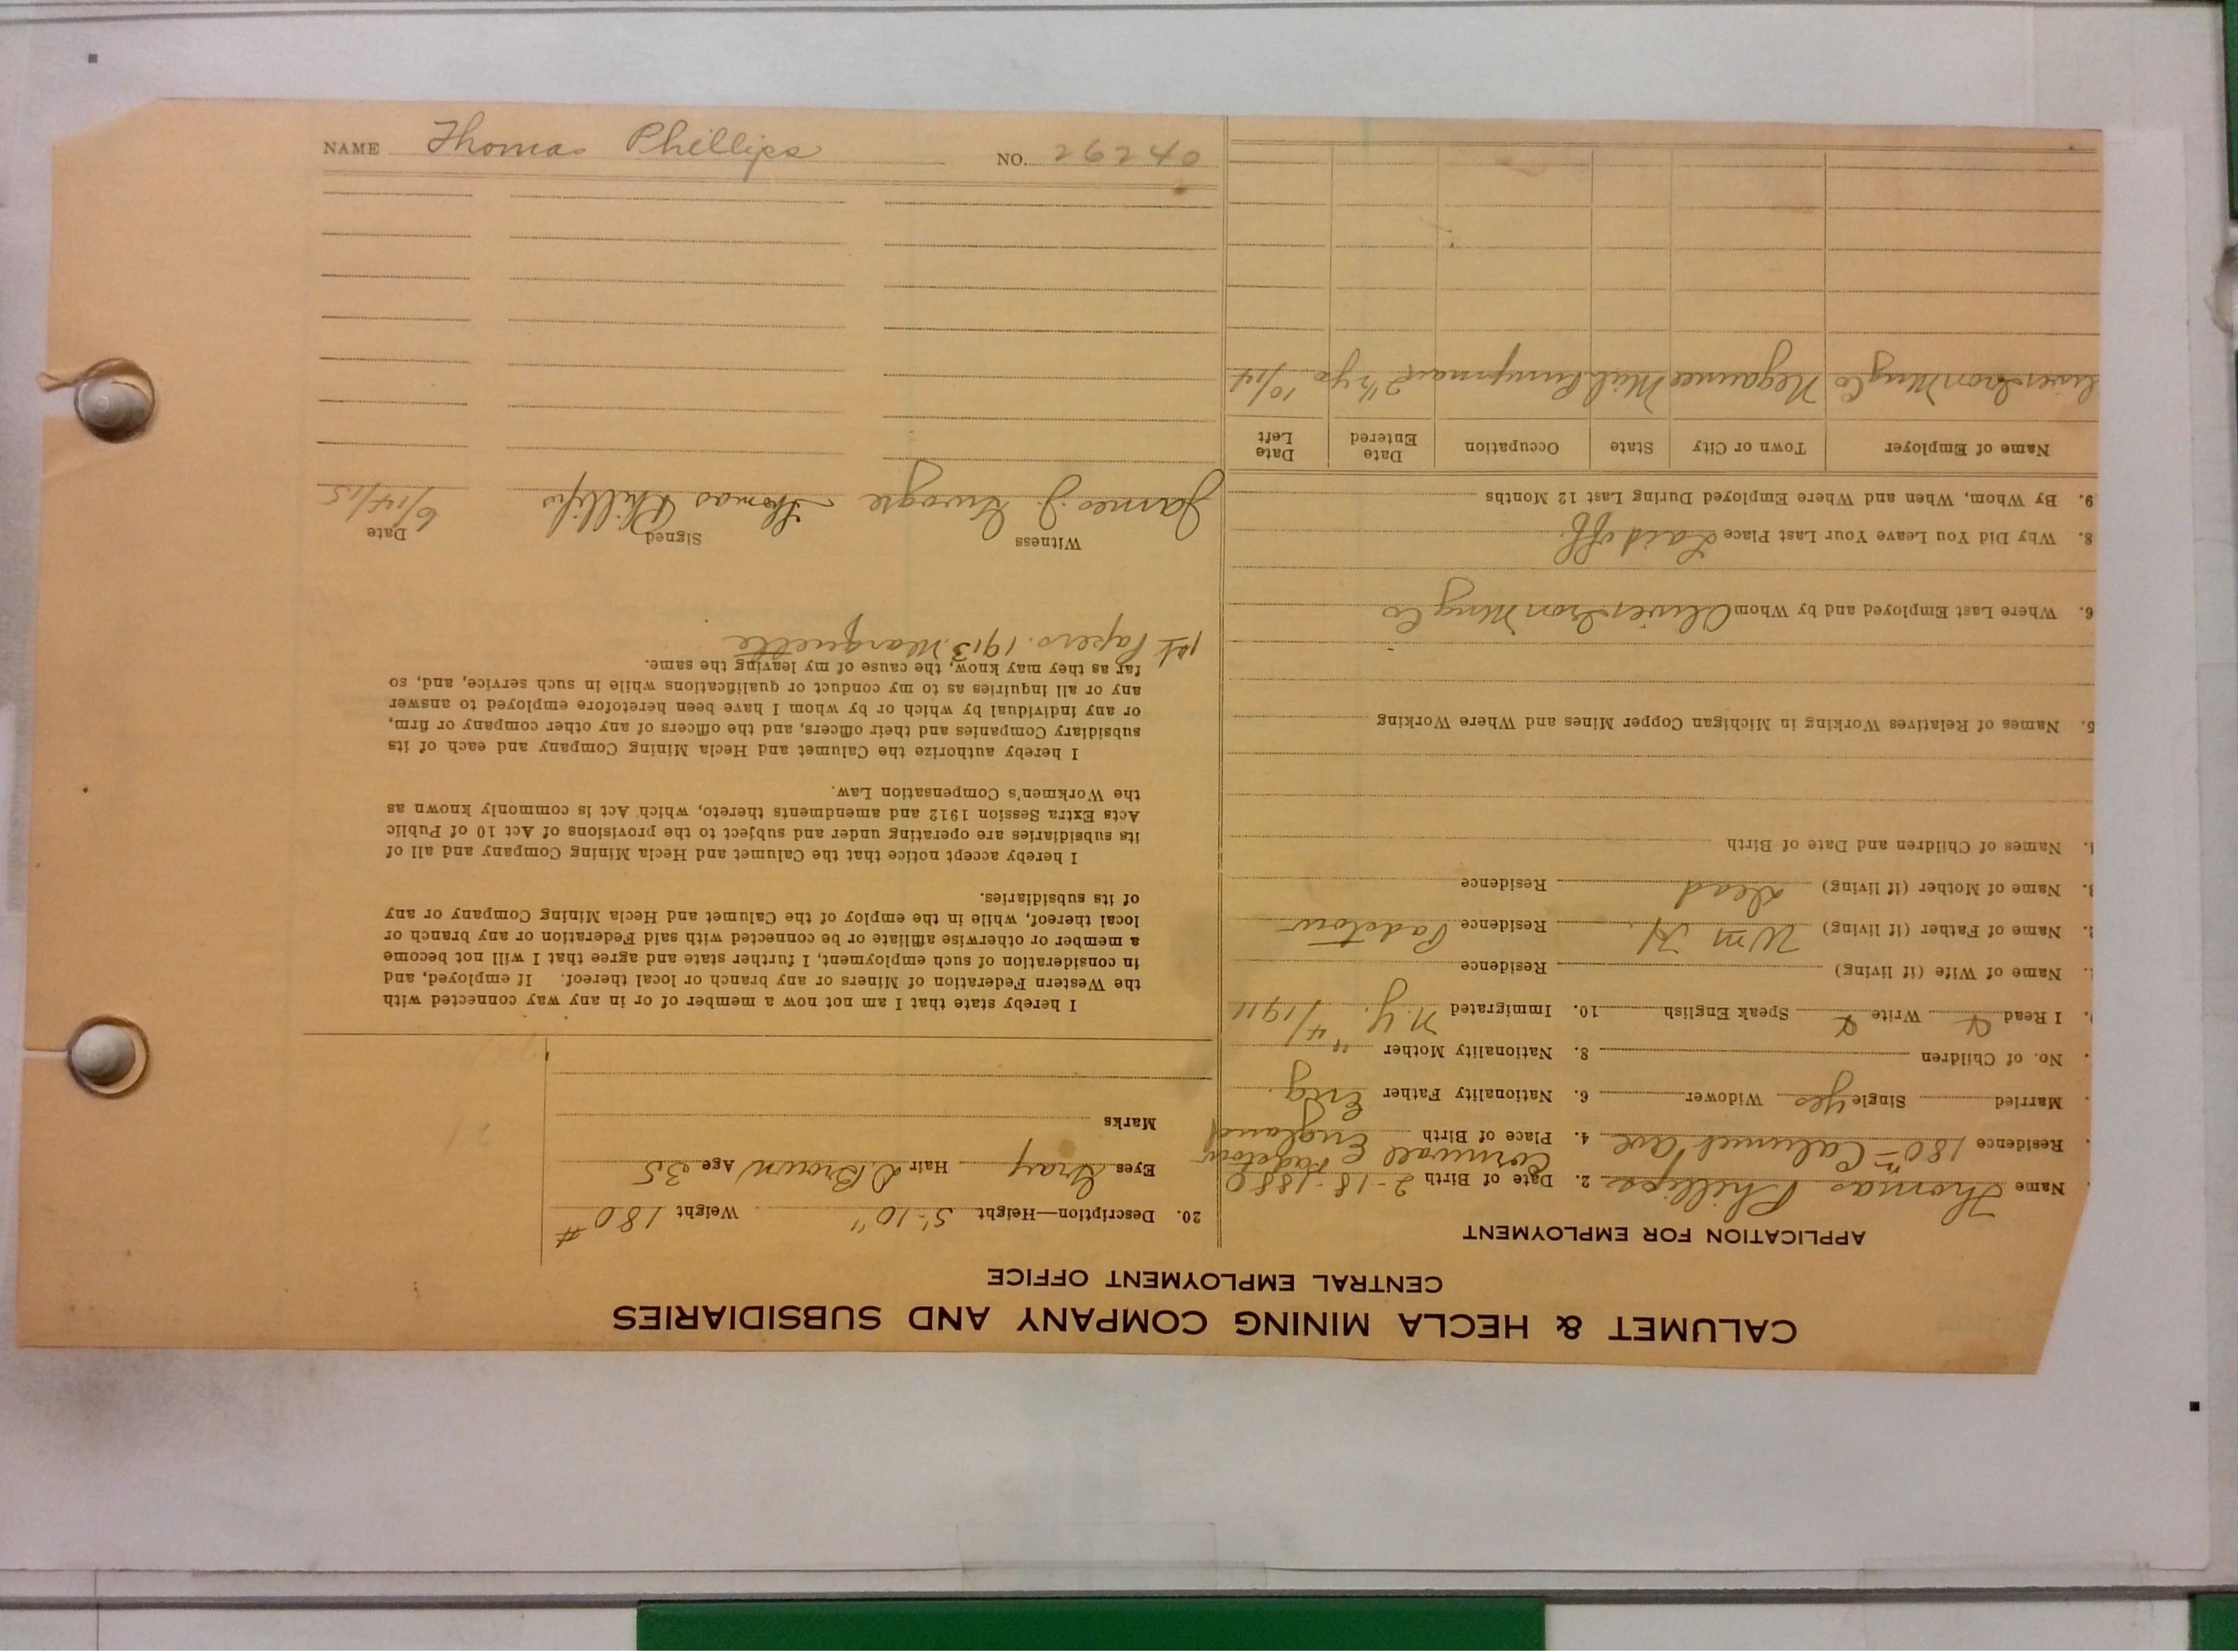 CALUMET & HECLA MINING COMPANY AND SUBSIDIARIES
CENTRAL EMPLOYMENT OFFICE
APPLICATION FOR EMPLOYMENT
Name Thomas Phillips 2. Date of Birth 2-18-1880
Cornwall Padstow
Residence 180 Calumet Ave 4. Place of Birth England
Married Single Yes Widower 6. Nationality Father Eng.
No. of Children 8. Nationality Mother "
I Read Write Speak English 10. Immigrated N.Y. 4/1911
Name of Wife (if living) Residence
2. Name of Father (if living) Wm H. Residence Padstow
3. Name of Mother (if living) Dead Residence
Names of Children and Date of Birth
5. Names of Relatives Working in Michigan Copper Mines and Where Working
6. Where Last Employed and by Whom Oliver Iron Mng Co
8. Why Did You Leave Your Last Place Laid off.
9. By Whom, When and Where Employed During Last 12 Months
Name of Employer Town or City State Occupation Date Entered Date Left
liver Iron Mng Co Negaunee Mich Pumpman 2 1/2 yrs 10/14
20. Description—Height 5'-10" Weight 180#
Eyes Gray Hair D.Brown Age 35
Marks
I hereby state that I am not now a member of or in any way connected with
the Western Federation of Miners or any branch or local thereof. If employed, and
in consideration of such employment, I further state and agree that I will not become
a member or otherwise affiliate or be connected with said Federation or any branch or
local thereof, while in the employ of the Calumet and Hecla Mining Company or any
of its subsidiaries.
I hereby accept notice that the Calumet and Hecla Mining Company and all of
its subsidiaries are operating under and subject to the provisions of Act 10 of Public
Acts Extra Session 1912 and amendments thereto, which Act is commonly known as
the Workmen's Compensation Law.
I hereby authorize the Calumet and Hecla Mining Company and each of its
subsidiary Companies and their officers, and the officers of any other company or firm,
or any individual by which or by whom I have been heretofore employed to answer
any or all inquiries as to my conduct or qualifications while in such service, and, so
far as they may know, the cause of my leaving the same.
1st Papers. 1913. Marquette
Witness Signed Date
James J. Thomas Phillips 6/14/15
NAME Thomas Phillips NO. 26240